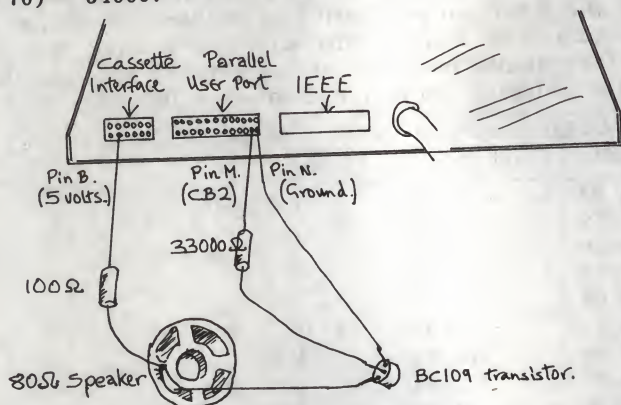 Cassette Interface
Parallel User Port
IEEE
Pin B. (5 volts.)
Pin M. (CB2)
Pin N. (Ground.)
33000Ω
100Ω
80Ω Speaker
BC109 transistor.